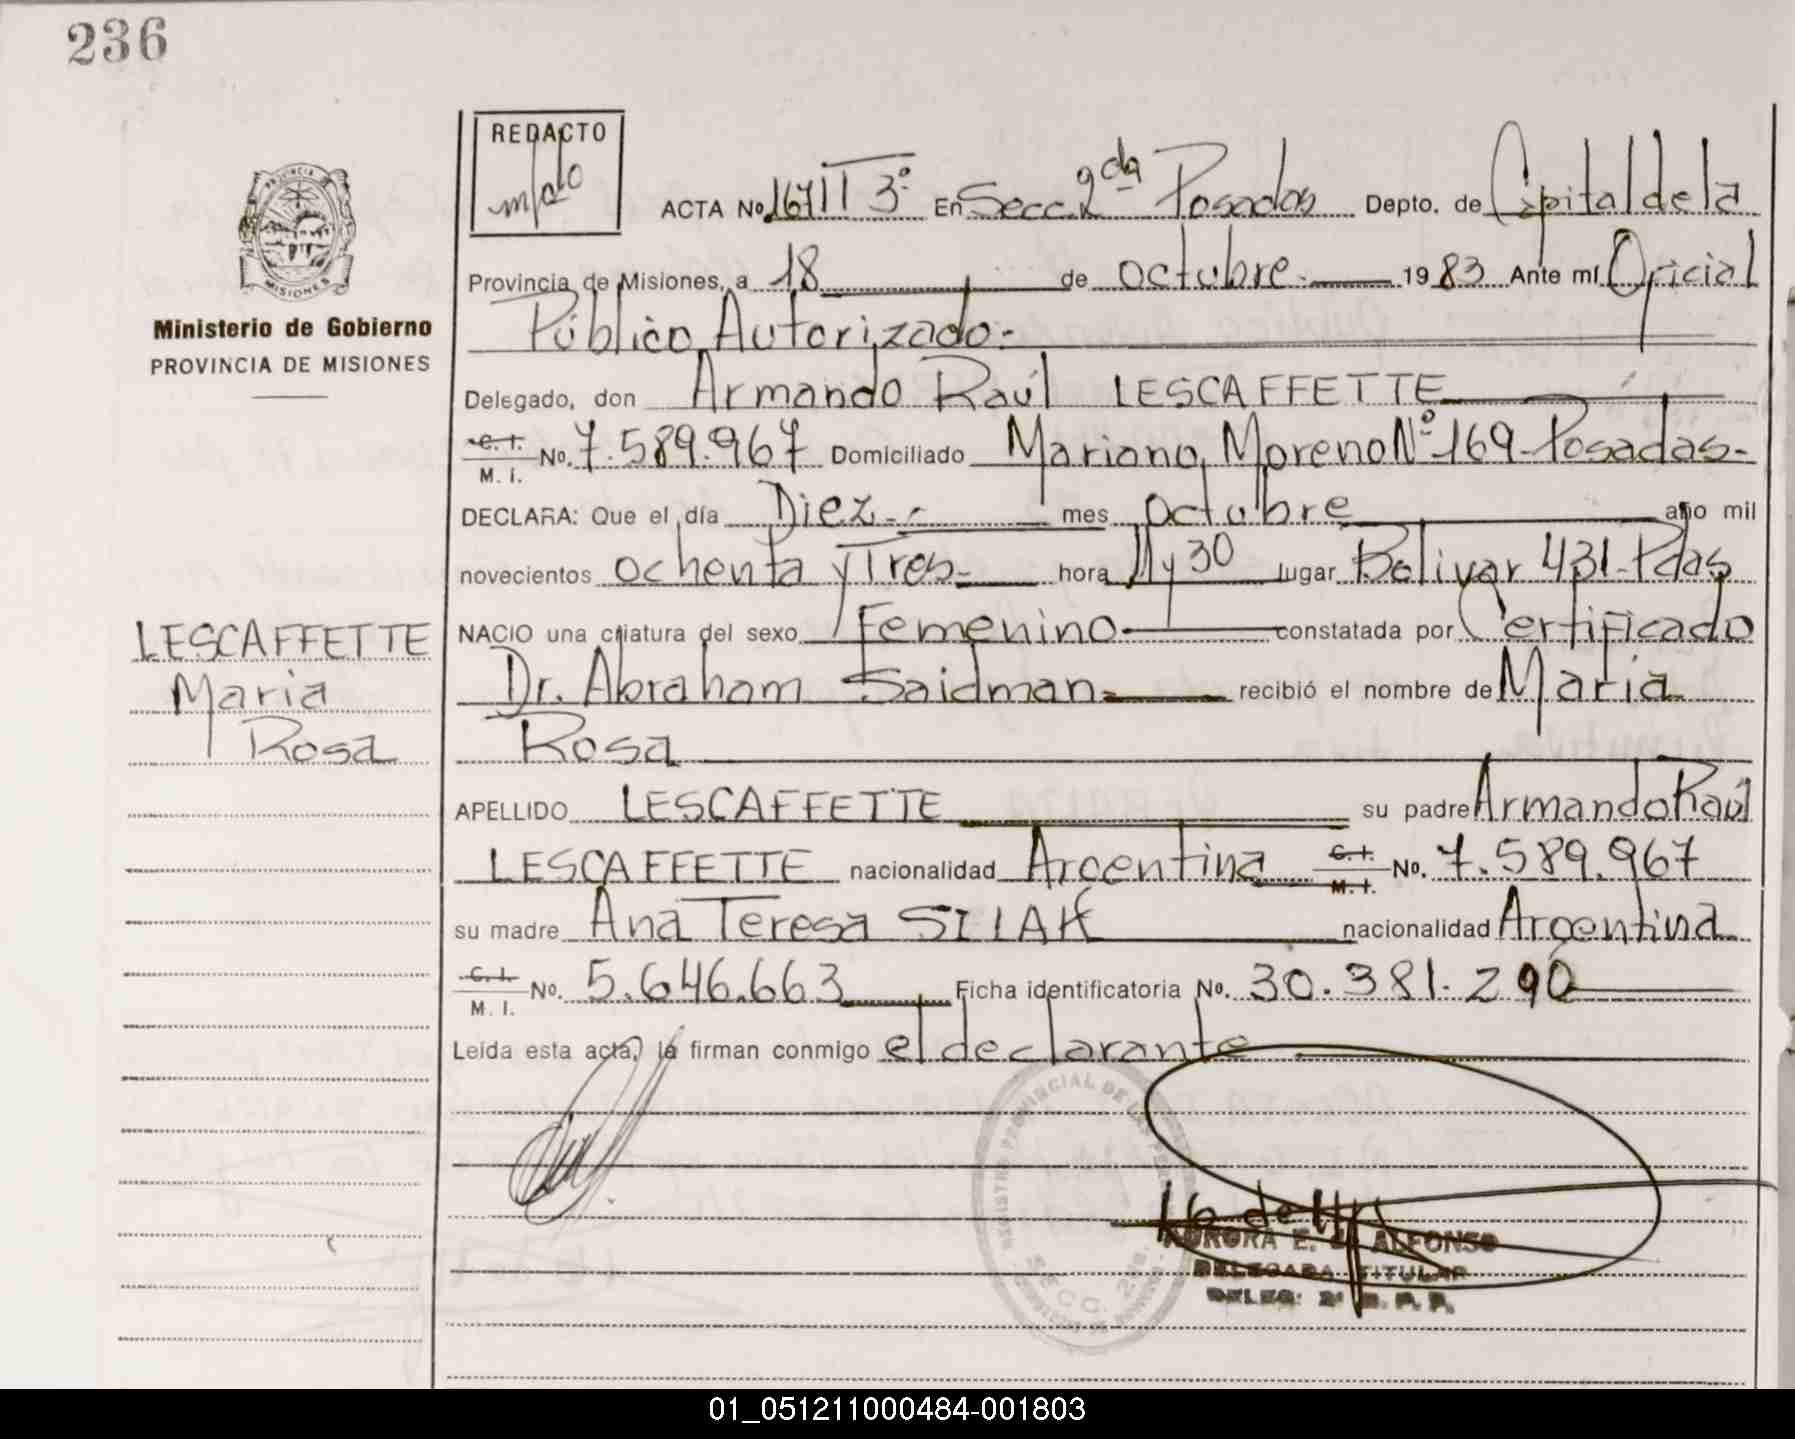 236
REDACTO
ACTA No. 1671 T 3º. En Secc. 2da Posadas Depto. de Capital de la
Provincia de Misiones, a 18 de octubre.- 1983 Ante mí Oficial
Público Autorizado.-
Ministerio de Gobierno
PROVINCIA DE MISIONES
Delegado, don Armando Raúl LESCAFFETTE
C. I.
M. I. No. 7.589.967 Domiciliado Mariano Moreno Nº 169-Posadas-
DECLARA: Que el día Diez.- mes octubre año mil
novecientos ochenta y Tres- hora 11 y 30 lugar Bolivar 431-Pdas
NACIO una criatura del sexo Femenino constatada por Certificado
Dr. Abraham Saidman- recibió el nombre de María
Rosa
LESCAFFETTE
Maria
Rosa
APELLIDO LESCAFFETTE su padre Armando Raúl
LESCAFFETTE nacionalidad Argentina C. I.
M. I. No. 7.589.967
su madre Ana Teresa SILAK nacionalidad Argentina
C. I.
M. I. No. 5.646.663 Ficha identificatoria No. 30.381.290
Leida esta acta, la firman conmigo el declarante
REGISTRO PROVINCIAL DE LAS PERSONAS
SECC. 2da.
AURORA E. ALFONSO
DELEGADA TITULAR
DELEG. 2ª R. P. P.
01_051211000484-001803